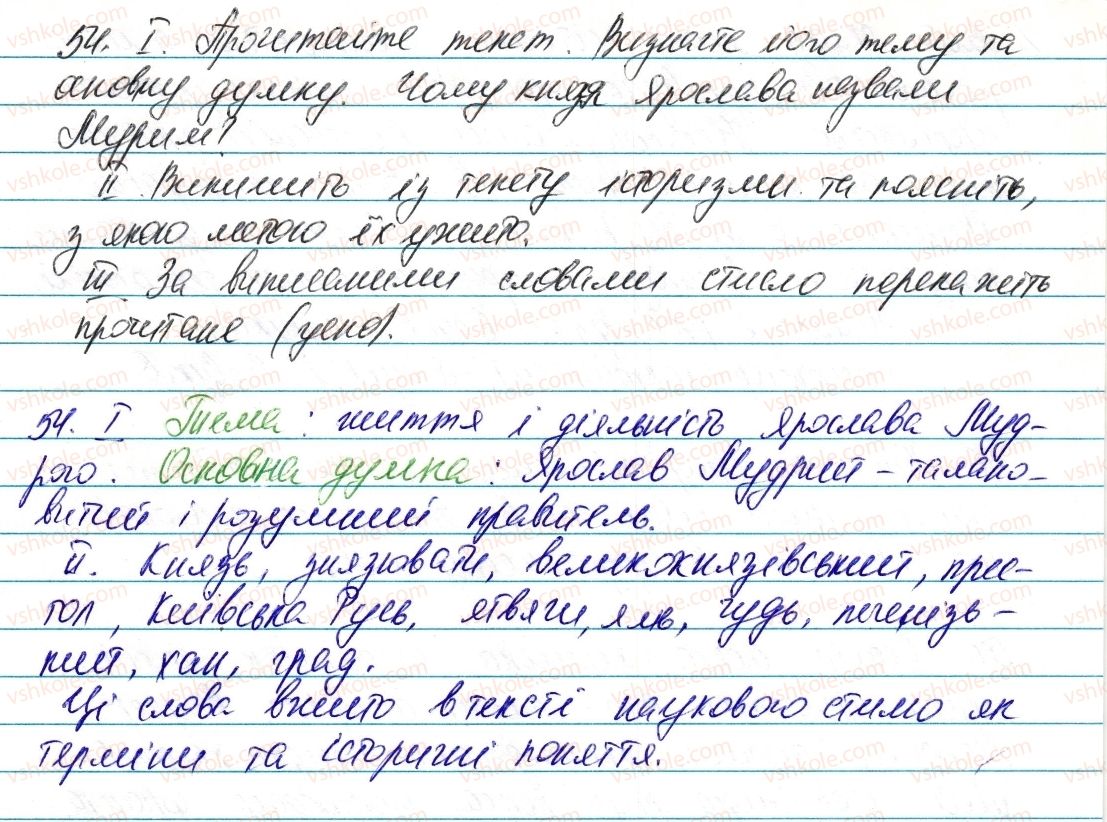 54. І. Прочитайте текст. Визначте його тему та
основну думку. Чому князя Ярослава назвали
Мудрим?
ІІ. Випишіть із тексту історизми та поясніть,
з якою метою їх ужито.
ІІІ. За виписаними словами стисло перекажіть
прочитане (усно).
54. І Тема: життя і діяльність Ярослава Муд-
рого. Основна думка: Ярослав Мудрий – талано-
витий і розумний правитель.
ІІ. Князь, князювати, великокнязівський, прес-
тол, Київська Русь, ятвяги, ляхи, чудь, печенізь-
кий, хан, град.
Ці слова вжито в тексті наукового стилю як
терміни та історичні поняття.
vshkole.com